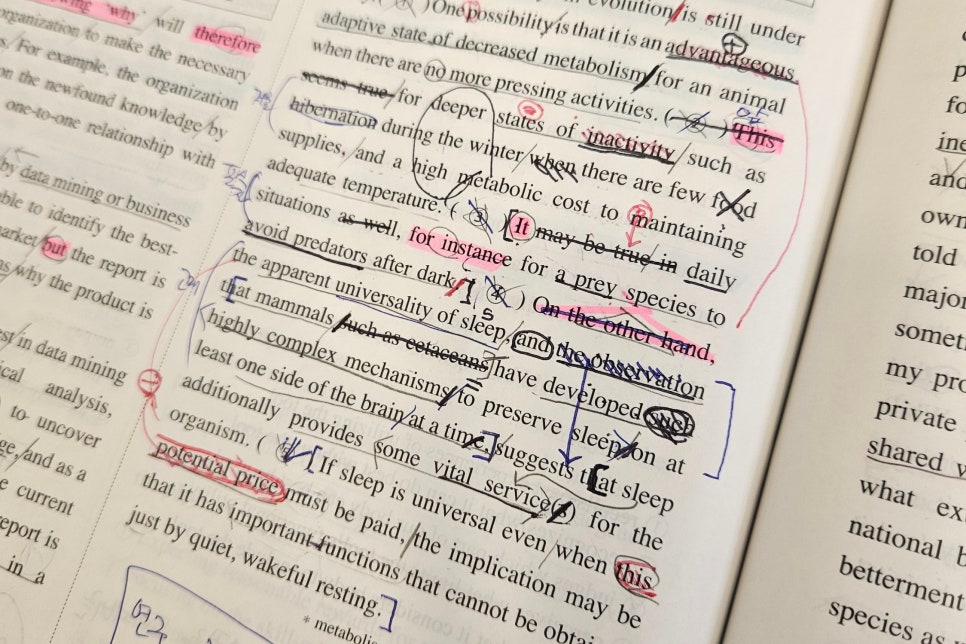 wing 'why' will therefore
organization to make the necessary
s. For example, the organization
on the newfound knowledge by
one-to-one relationship with
by data mining or business
ble to identify the best-
market but the report is
as why the product is
est in data mining
ical analysis,
to uncover
ge, and as a
e current
eport is
in a
evolution is still under
One possibility is that it is an advantageous,
adaptive state of decreased metabolism for an animal
when there are no more pressing activities. ( ② ) This
seems true for deeper states of inactivity such as
hibernation during the winter when there are few food
supplies, and a high metabolic cost to maintaining
adequate temperature. ( ③ ) It may be true in daily
situations as well, for instance for a prey species to
avoid predators after dark. ( ④ ) On the other hand,
the apparent universality of sleep, and the observation
that mammals such as cetaceans have developed such
highly complex mechanisms to preserve sleep on at
least one side of the brain at a time, suggests that sleep
additionally provides some vital service(s) for the
organism. ( ) If sleep is universal even when this
potential price must be paid, the implication may be
that it has important functions that cannot be obtai
just by quiet, wakeful resting.
* metabolis
p
fo
ine
and
own
told
major
somet
my pro
private
shared w
what ex
national b
betterment
species as